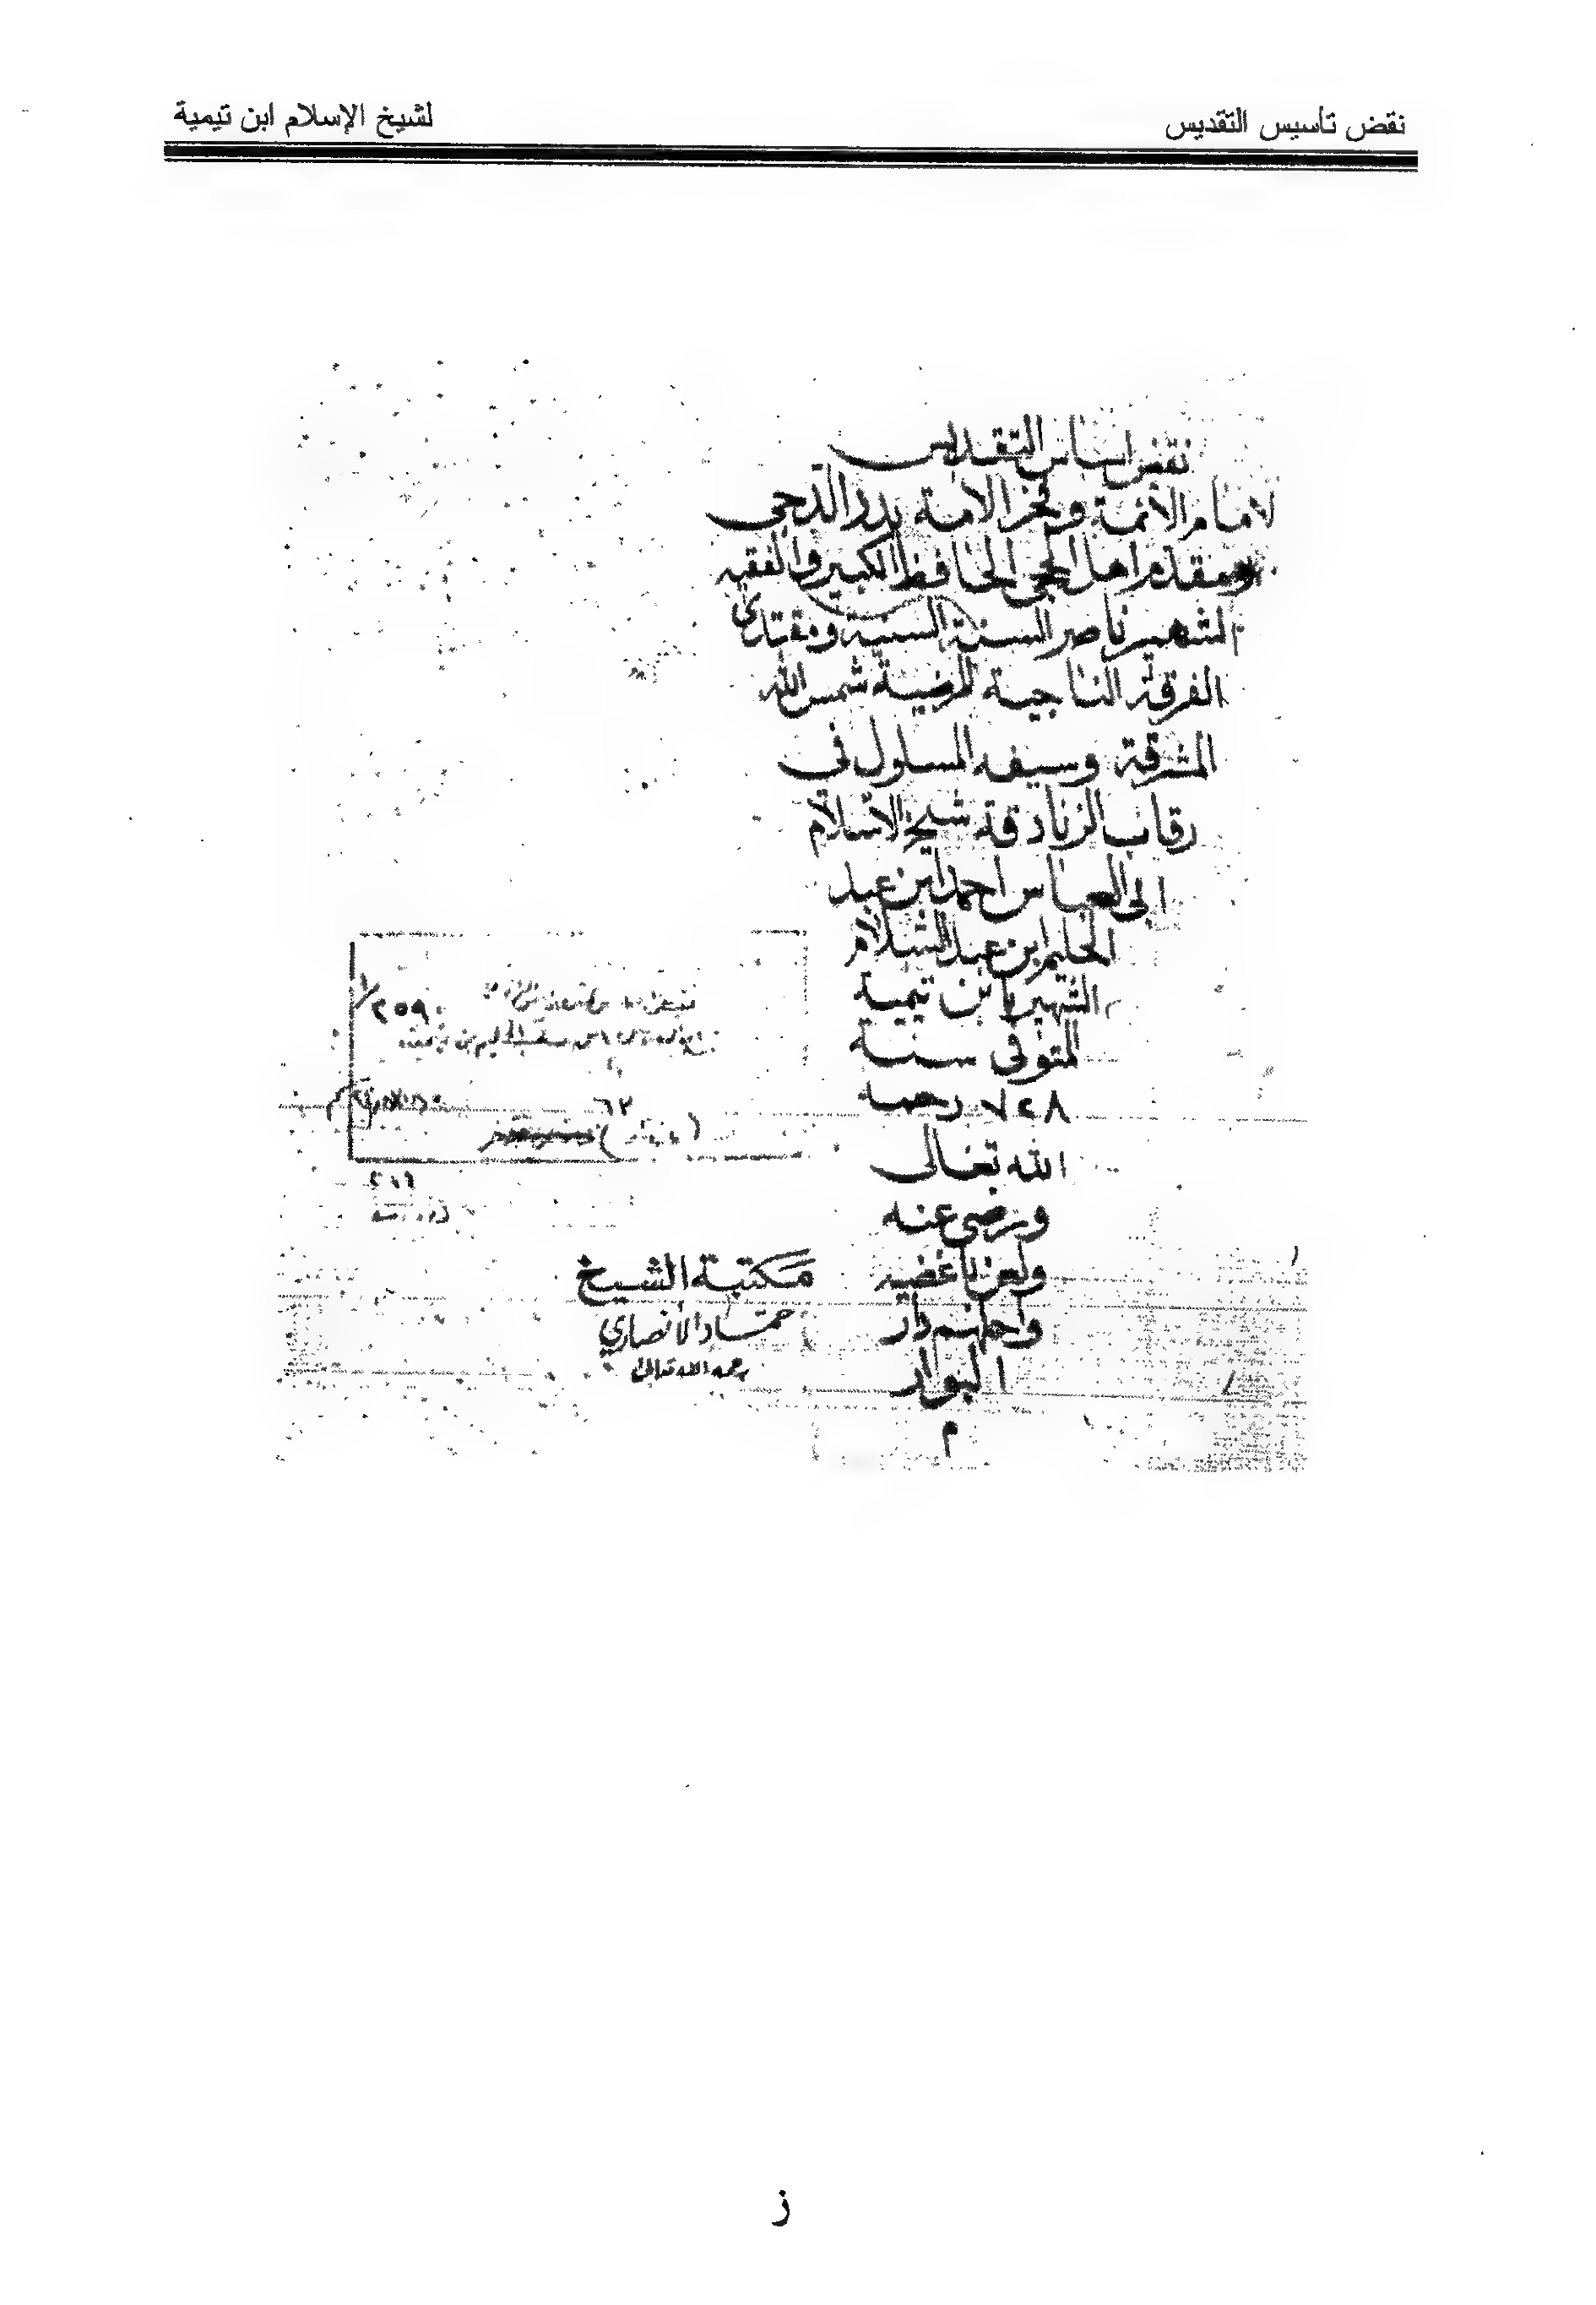 نقض تأسيس التقديس
لشيخ الإسلام ابن تيمية
نقض اساس التقديس
لامام الأئمة وفخر الامة بدر الدجى
ومقدم اهل الحجى الحافظ الكبير والفقيه
الشهير ناصر السنة السنية ومقتدى
الفرقة الناجية المرضية شمس الله
المشرقة وسيفه المسلول في
رقاب الزنادقة شيخ الاسلام
ابى العباس احمد ابن عبد
الحليم ابن عبد السلام
الشهير بابن تيمية
المتوفى سنة
٧٢٨ رحمه
الله تعالى
ورضي عنه
ولعن باغضيه
واحلهم دار
البوار
م
٢٥٩٠
٦٢
مكتبة الشيخ
حماد الأنصاري
رحمه الله تعالى
ز